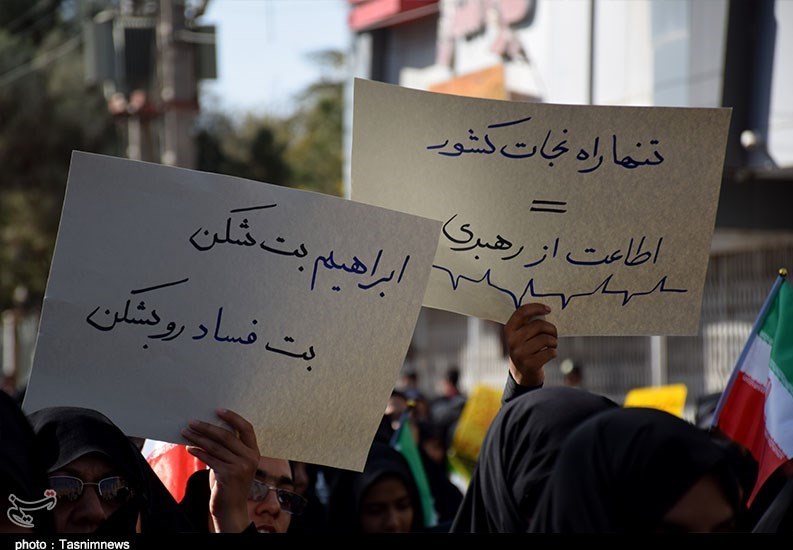 تنها راه نجات کشور
=
اطاعت از رهبری
ابراهیم بت شکن
بت فساد رو بشکن
تسنیم
photo : Tasnimnews